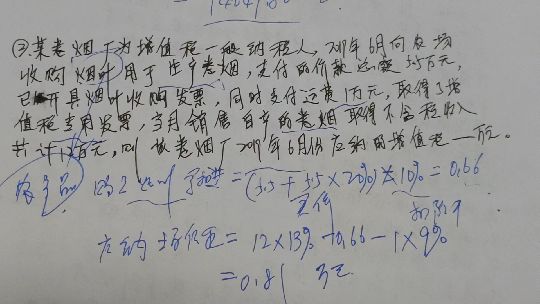 ③.某卷烟厂为增值税一般纳税人,2019年6月向农场
收购烟叶用于生产卷烟,支付的价款总额5.5万元,
已开具烟叶收购发票,同时支付运费1万元,取得了增
值税专用发票,当月销售自产的卷烟取得不含税收入
共计12万元,则该卷烟厂2019年6月份应纳的增值税 元。
农产品 购入烟叶 = (5.5+5.5×20%)×10% = 0.66
买价 扣除率
应纳增值税 = 12×13%-0.66-1×9%
=0.81 万元